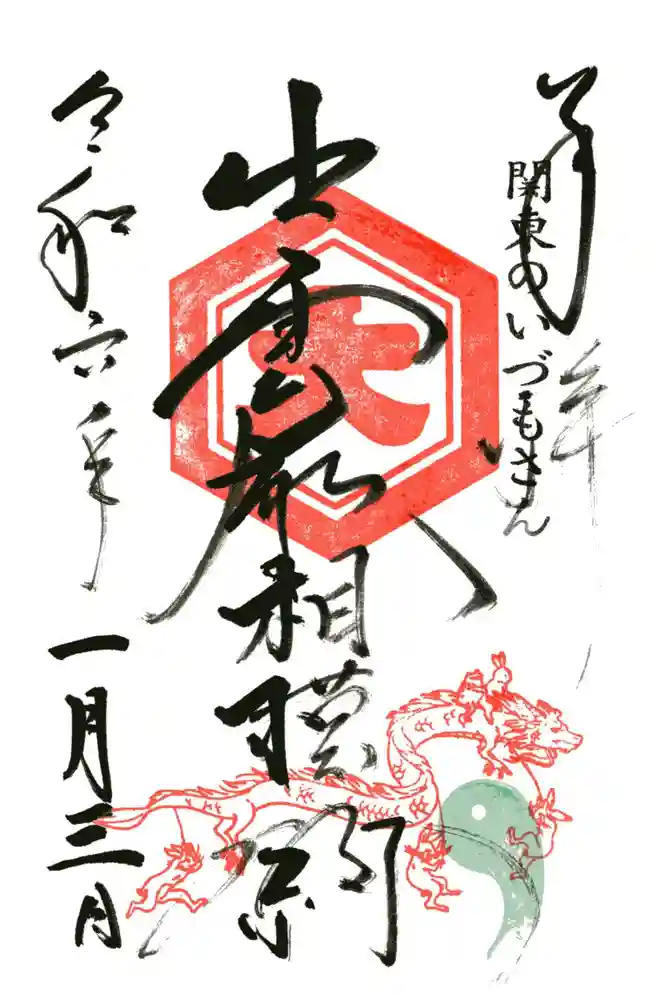 関東のいづもさん
出雲大社相模分祠
令和六年一月三日